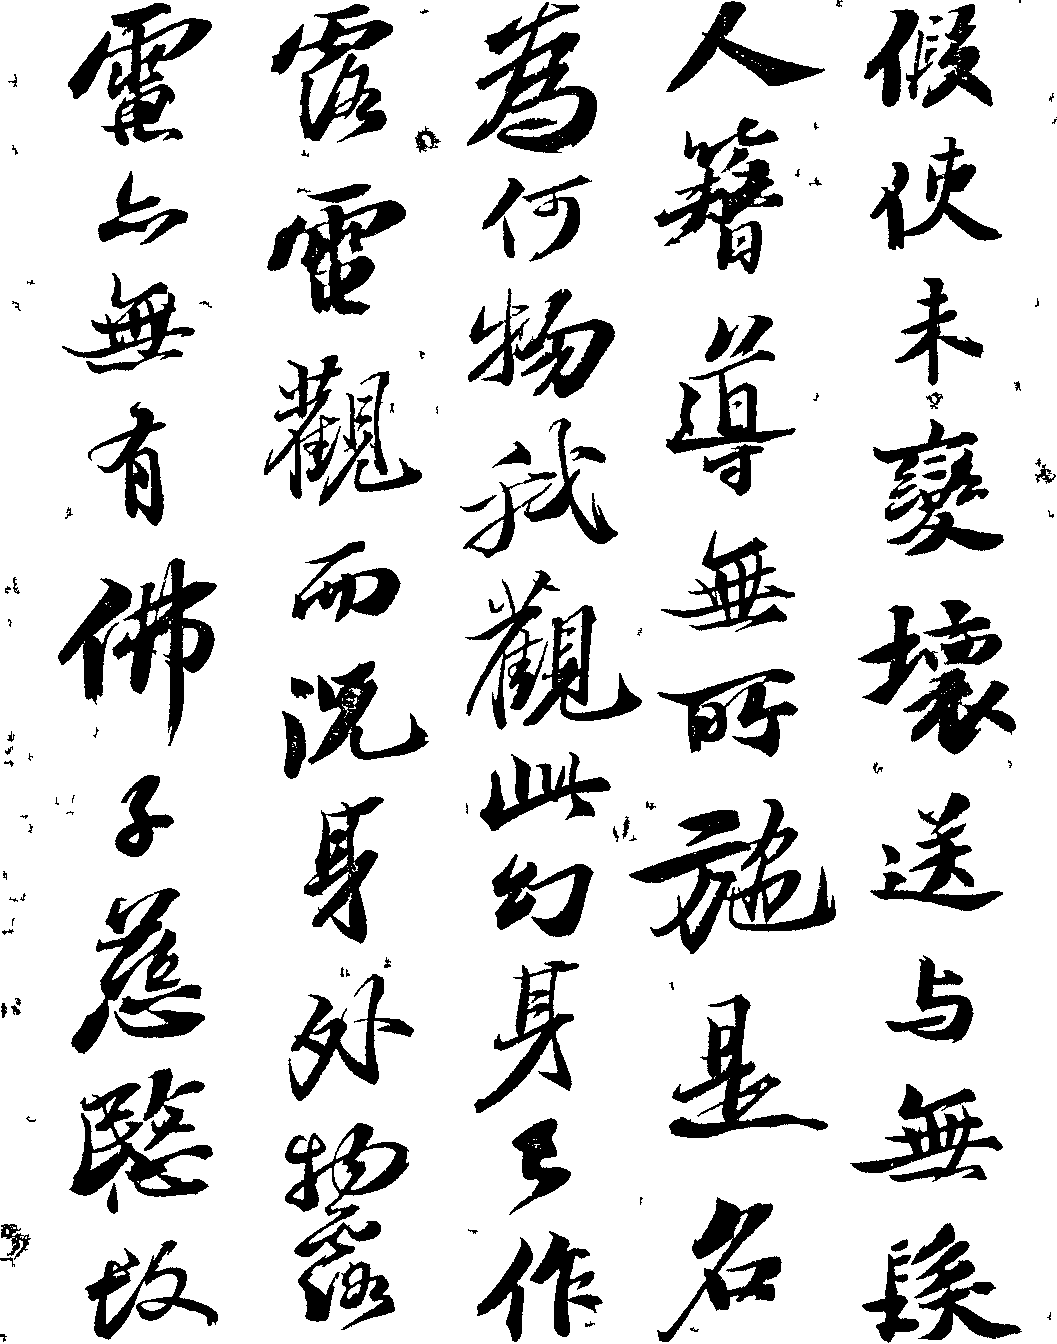 假使未變壞送与無髮
人簪導無所施是名
為何物我觀此幻身已作
露電觀而況身外物露
電亦無有佛子慈愍故